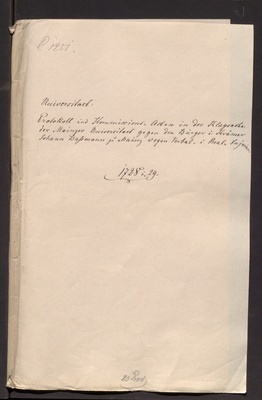 Universitaet.
Protokoll und Kommissions-Acten in der Klagsache
der Mainzer Universitaet gegen den Bürger u. Krämer
Johann Baßmann zu Mainz wegen Verbal- u. Real-Injurien
1728 u. 29.